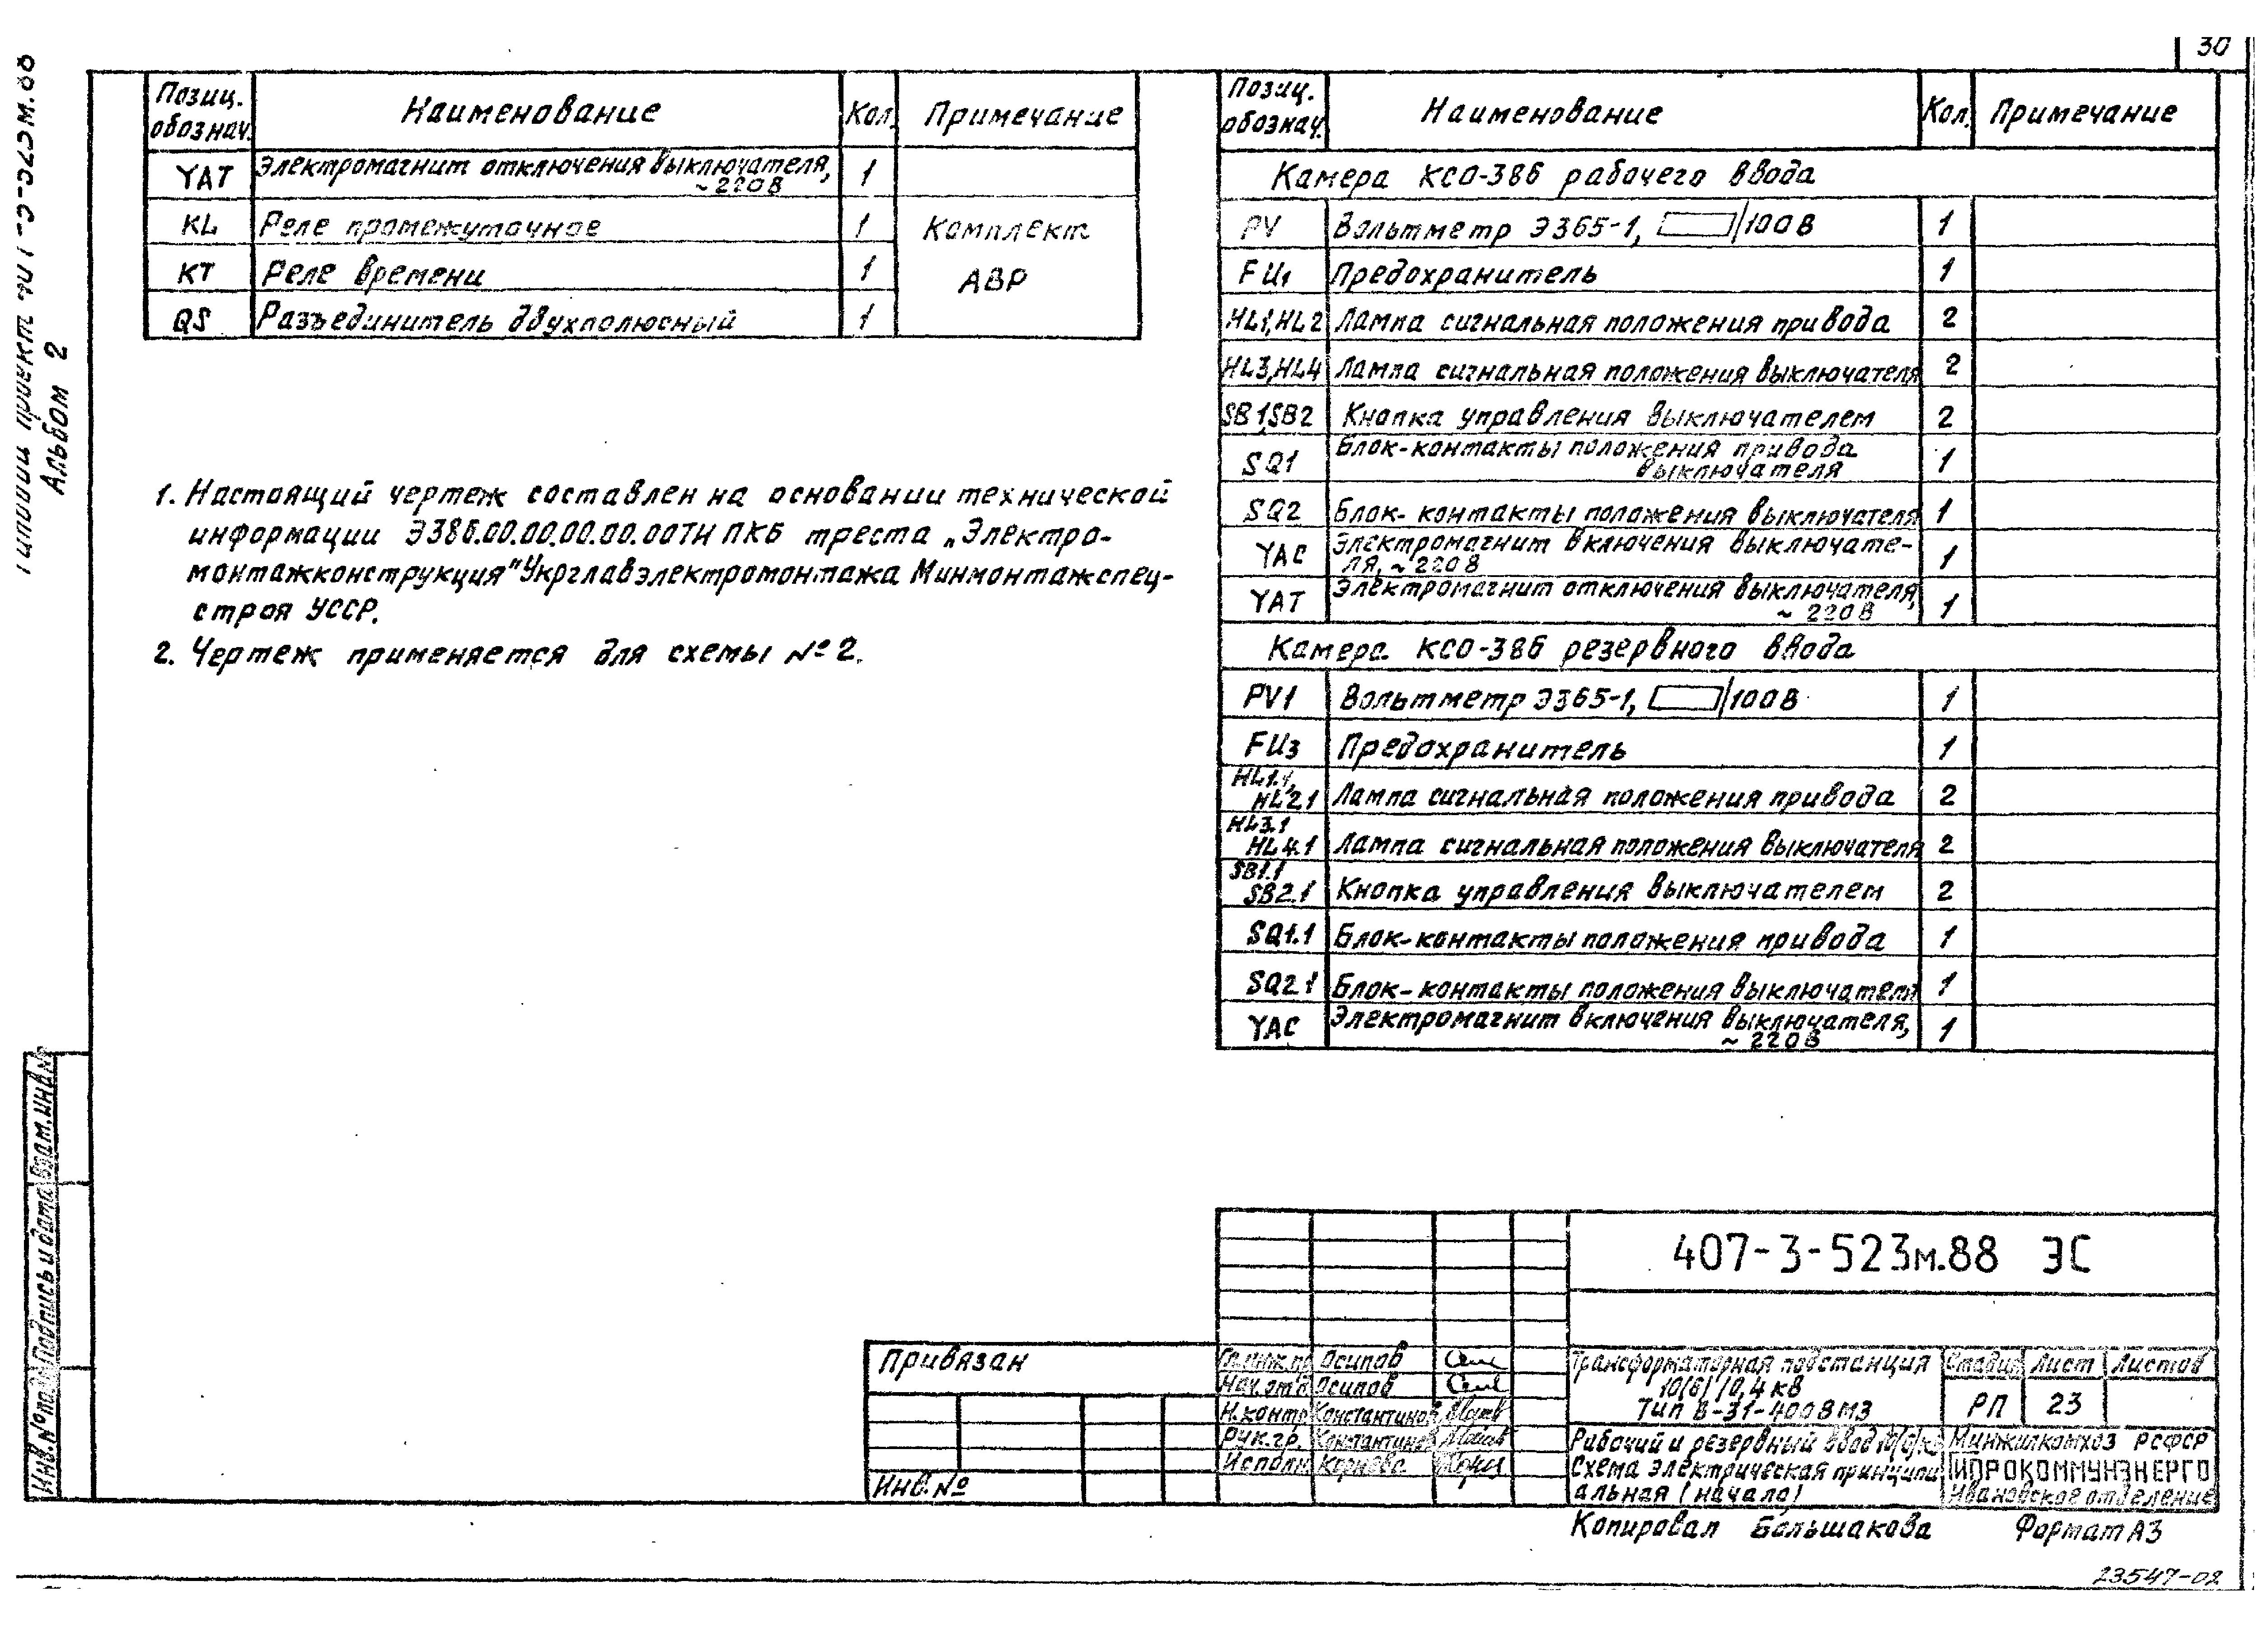 30
Альбом 2
Позиц. обознач. Наименование Кол. Примечание
YAT Электромагнит отключения выключателя, ~220В 1
KL Реле промежуточное 1 Комплект
KT Реле времени 1 АВР
QS Разъединитель двухполюсный 1
1. Настоящий чертеж составлен на основании технической
информации Э386.00.00.00.00.00ТИ ПКБ треста „Электро-
монтажконструкция" Укрглавэлектромонтажа Минмонтажспец-
строя УССР.
2. Чертеж применяется для схемы №2.
Позиц. обознач. Наименование Кол. Примечание
Камера КСО-386 рабочего ввода
PV Вольтметр Э365-1, /100В 1
FU1 Предохранитель 1
HL1,HL2 Лампа сигнальная положения привода 2
HL3,HL4 Лампа сигнальная положения выключателя 2
SB1,SB2 Кнопка управления выключателем 2
SQ1 Блок-контакты положения привода выключателя 1
SQ2 Блок-контакты положения выключателя 1
YAC Электромагнит включения выключате-
ля, ~220В 1
YAT Электромагнит отключения выключателя, ~220В 1
Камера КСО-386 резервного ввода
PV1 Вольтметр Э365-1, /100В 1
FU3 Предохранитель 1
HL1.1, HL2.1 Лампа сигнальная положения привода 2
HL3.1 HL4.1 Лампа сигнальная положения выключателя 2
SB1.1 SB2.1 Кнопка управления выключателем 2
SQ1.1 Блок-контакты положения привода 1
SQ2.1 Блок-контакты положения выключателя 1
YAC Электромагнит включения выключателя, ~220В 1
Взам.инв.№
Подпись и дата
Инв.№ подл.
407-3-523м.88 ЭС
Привязан
Инв.№
Гл.инж.пр Осипов
Нач.отд Осипов
Н.контр Константинов
Рук.гр. Константинов
Исполн Корнева
Трансформаторная подстанция
10(6)/0,4 кВ
Тип В-31-400 ВМ3
Стадия Лист Листов
РП 23
Рабочий и резервный ввод 10(6)кВ
Схема электрическая принципи
альная (начало)
Минжилкомхоз РСФСР
ГИПРОКОММУНЭНЕРГО
Ивановское отделение
Копировал Большакова Формат А3
23547-02